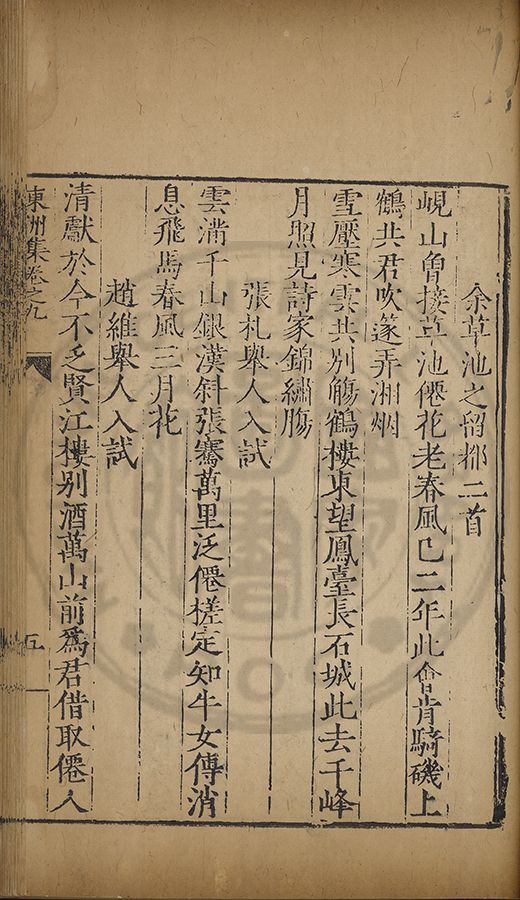 余草池之留都二首
峴山曾接草池僊花老春風已二年此會肯騎磯上
鶴共君吹篴弄湘烟
雪壓寒雲共别觴鶴樓東望鳳臺長石城此去千峰
月照見詩家錦繡膓
張札舉人入試
雲滿千山銀漢斜張騫萬里泛僊槎定知牛女傳消
息飛馬春風三月花
趙維舉人入試
清獻於今不乏賢江樓别酒萬山前爲君借取僊人
東洲集卷之九
五